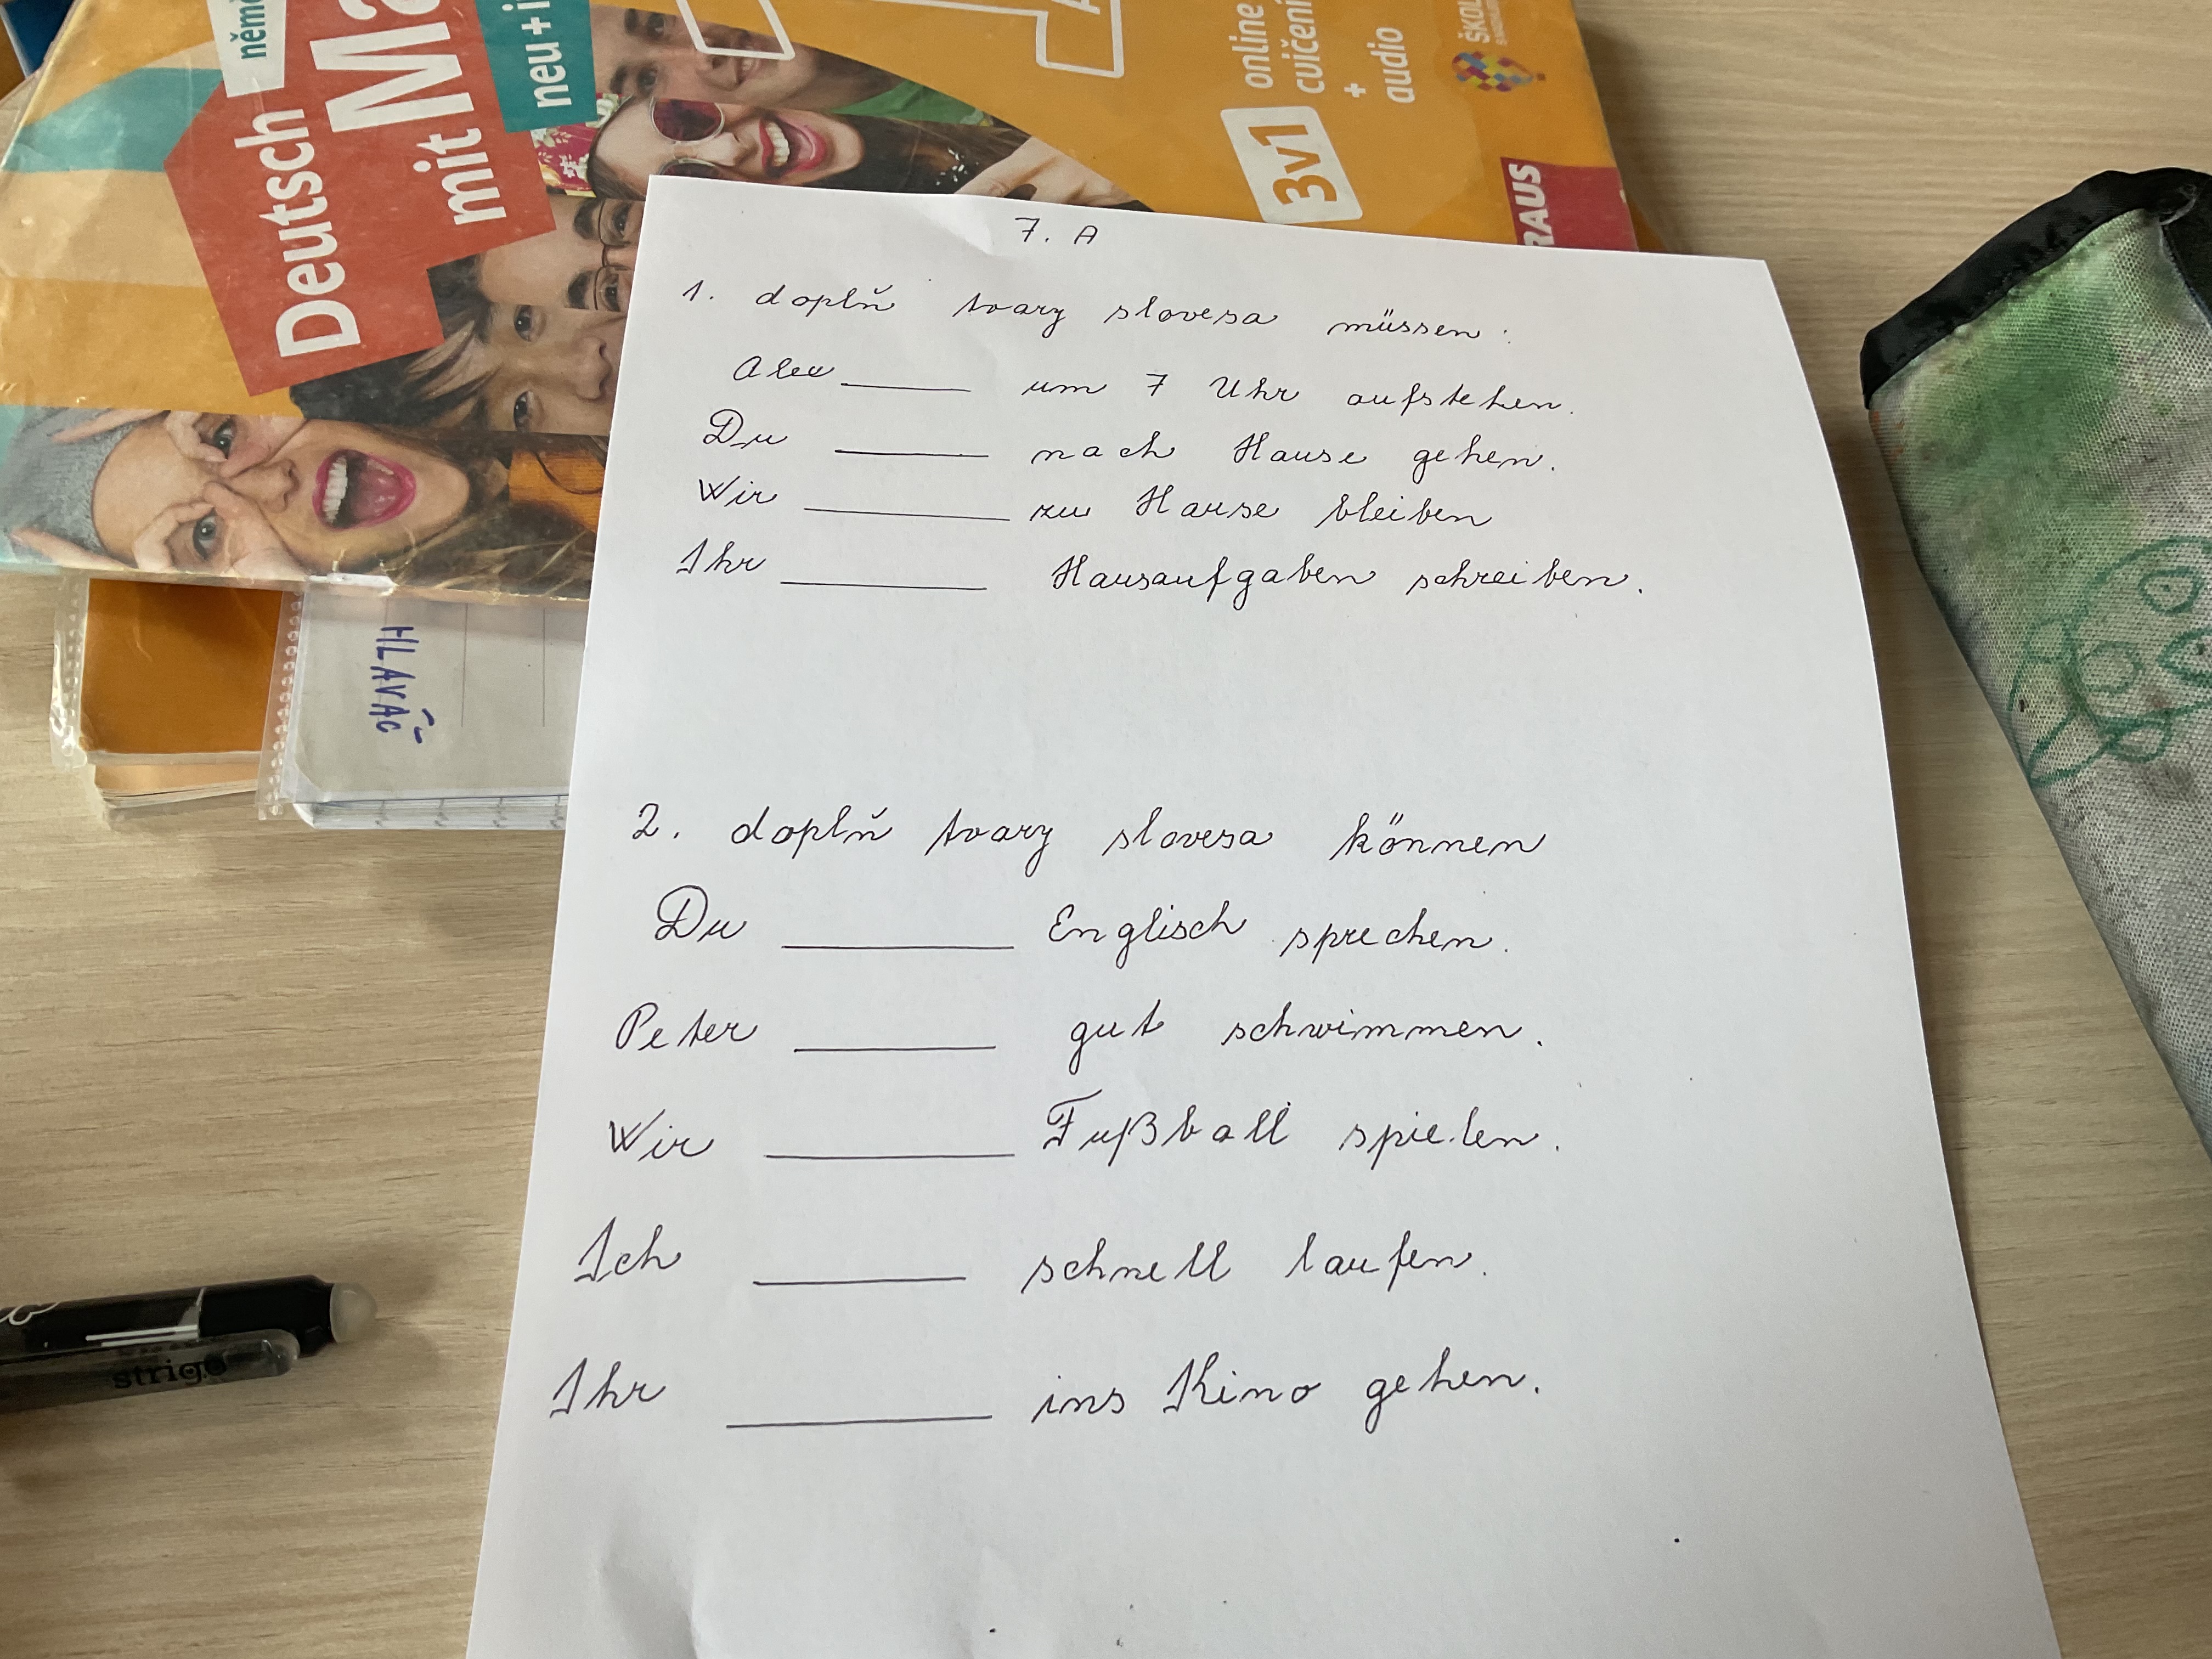 něme
Deutsch
mit Ma
neu+i
3v1
online
cvičení
+
audio
ŠKOL
RAUS
HLAVÁČ
strigo
7. A
1. doplň tvary slovesa müssen:
Alex ______ um 7 Uhr aufstehen.
Du ______ nach Hause gehen.
Wir ______ zu Hause bleiben
Ihr ______ Hausaufgaben schreiben.
2. doplň tvary slovesa können
Du ______ Englisch sprechen.
Peter ______ gut schwimmen.
Wir ______ Fußball spielen.
Ich ______ schnell laufen.
Ihr ______ ins Kino gehen.